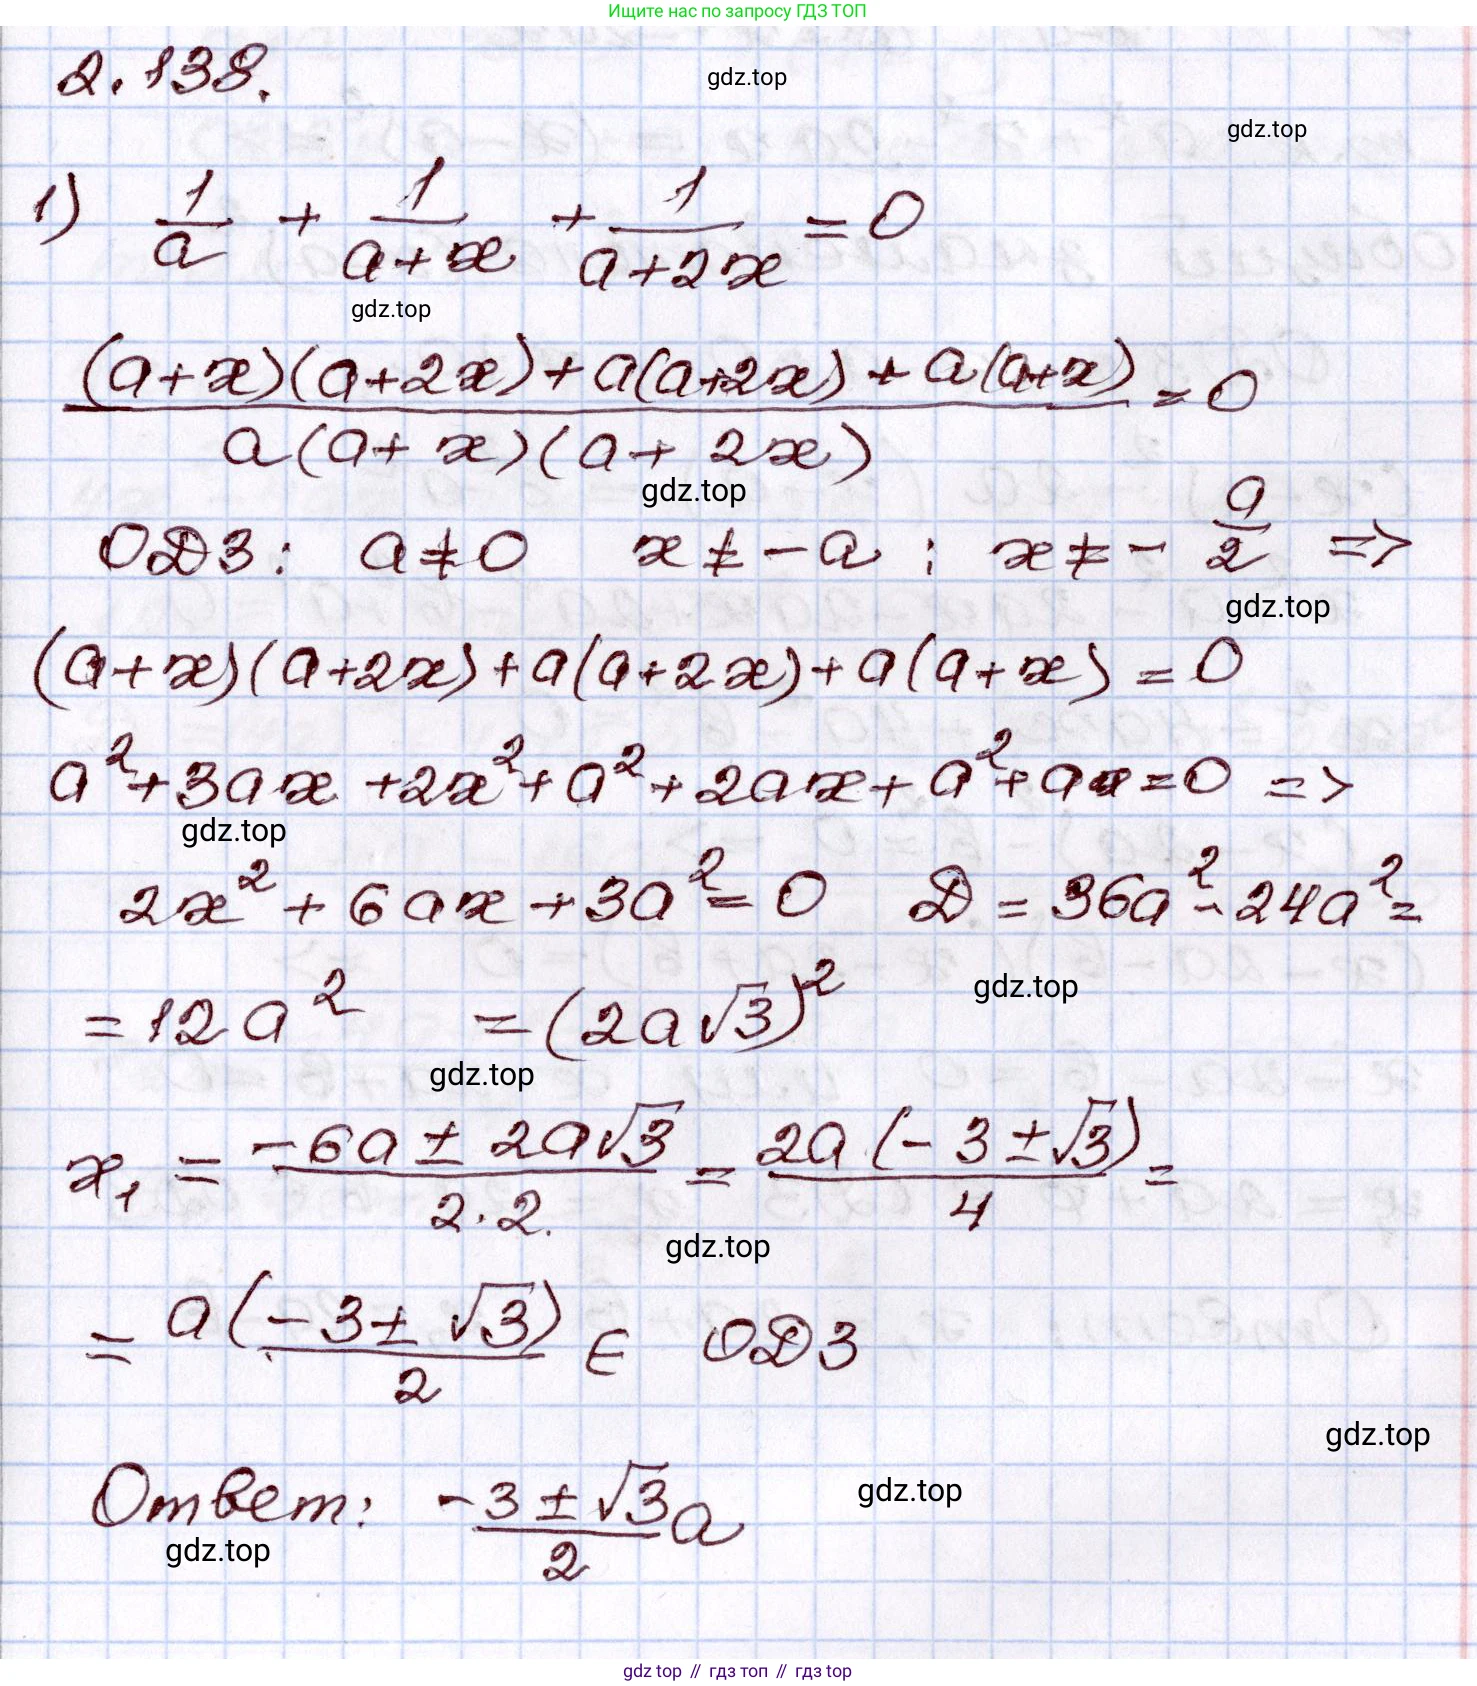 Ищите нас по запросу ГДЗ ТОП
2.138.
gdz.top
gdz.top
1) 1/a + 1/(a+x) + 1/(a+2x) = 0
gdz.top
((a+x)(a+2x)+a(a+2x)+a(a+x))/(a(a+x)(a+2x)) = 0
gdz.top
ОДЗ: a≠0 x≠-a ; x≠-a/2 =>
gdz.top
(a+x)(a+2x)+a(a+2x)+a(a+x)=0
a²+3ax+2x²+a²+2ax+a²+ax=0 =>
gdz.top
2x²+6ax+3a²=0 Д=36a²-24a²=
=12a² =(2a√3)²
gdz.top
gdz.top
x₁ = (-6a±2a√3)/(2·2.) = (2a(-3±√3))/4 =
gdz.top
= (a(-3±√3))/2 ∈ ОДЗ
gdz.top
Ответ: (-3±√3)/2 a
gdz.top
gdz.top
gdz top // гдз топ // гдз top